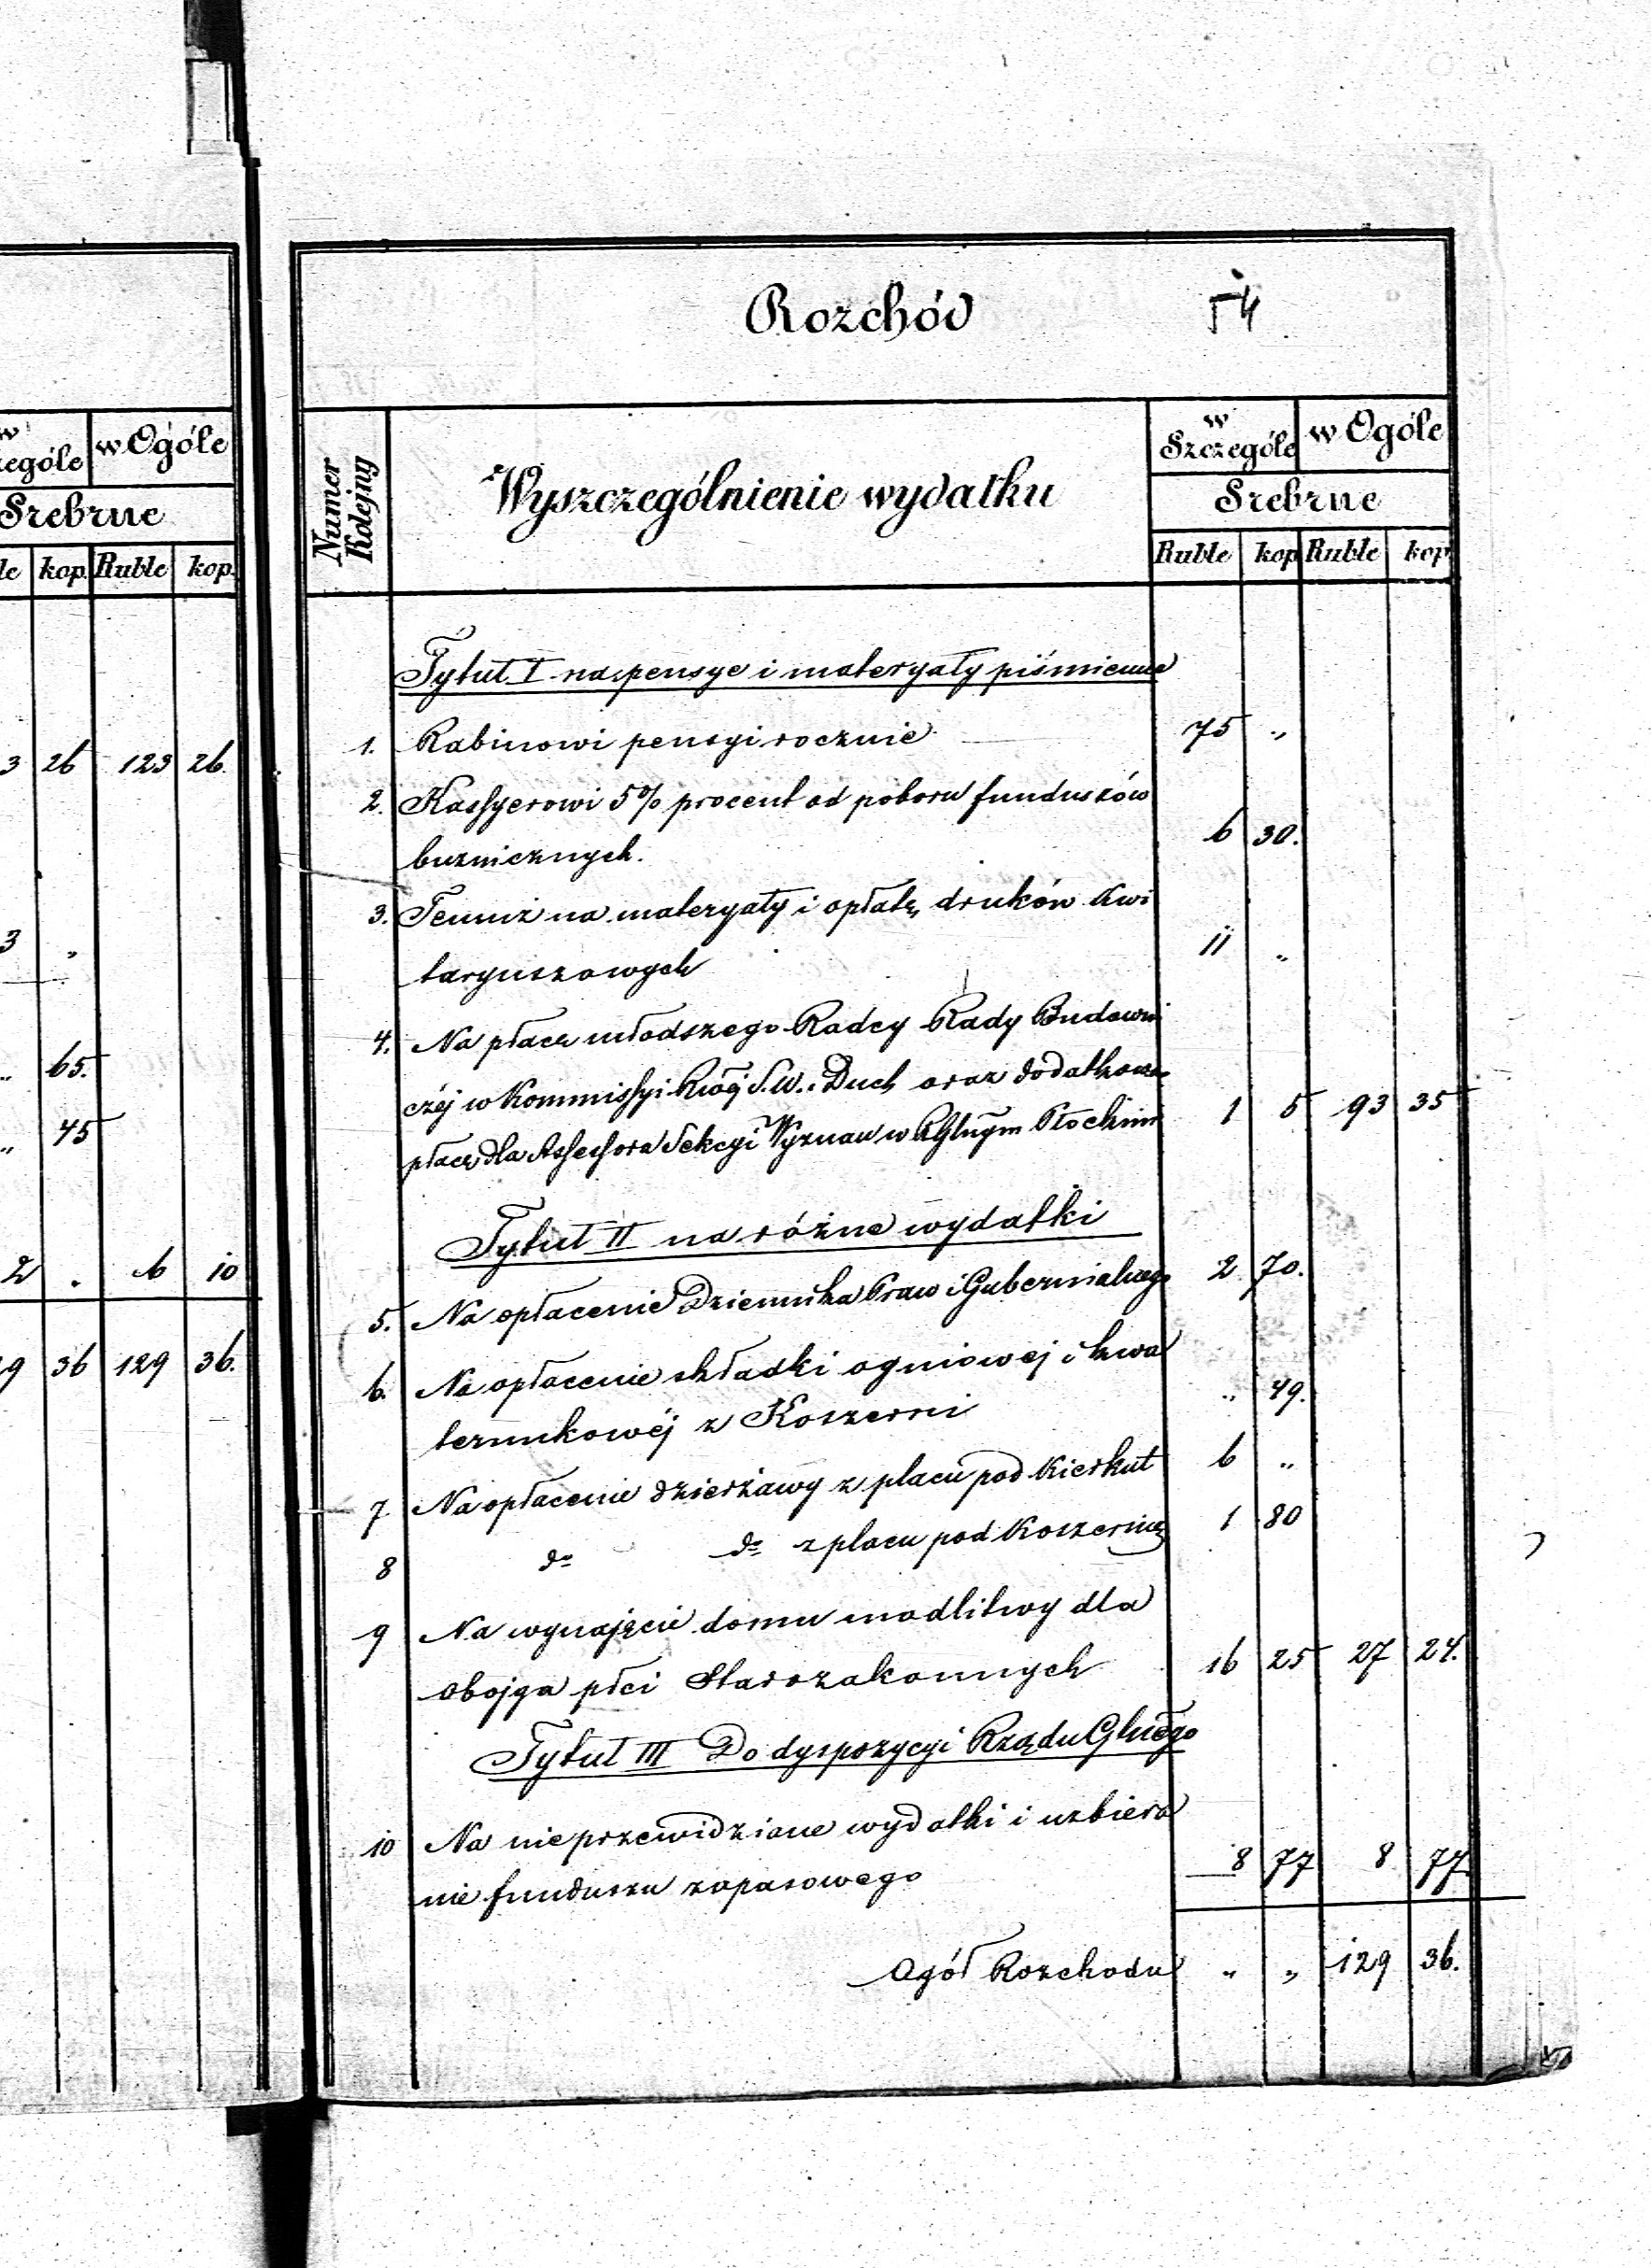 w Ogóle
Srebrne
kop. Ruble kop.
3 26 123 26.
3 „
„ 65.
„ 45
2 . 6 10
29 36 129 36.
Rozchód 54
Numer Kolejny
Wyszczególnienie wydatku
w Szczególe w Ogóle
Srebrne
Ruble kop Ruble kop
Tytuł I na pensye i materyały piśmienne
1. Rabinowi pensyi rocznie 75 „
2. Kassyerowi 5% procent od poboru funduszów
bużnicznych. 6 30.
3. Temuż na materyały i opłatę druków kwi
taryuszowych 11 „
4. Na płace młodszego Radcy Rady Budowni
czéj w Kommissyi S.W. i Duch oraz dodatkowa
płace dla Assessora Sekcyi Wyznan w Płockim 1 5 93 35
Tytuł II na różne wydatki
5. Na opłacenie Dziennika Praw i Gubernialnego 2 70.
6. Na opłacenie składki ogniowej i kwa
terunkowéj z Koszerni „ 49.
7 Na opłacenie dzierżawy z placu pod Kierkut 6 „
8 do do z placu pod Koszernię 1 80
9 Na wynajęcie domu modlitwy dla
obojga płci Starozakonnych 16 25 27 24.
Tytuł III Do dyspozycyi Rządu Glnego
10 Na nieprzewidziane wydatki i uzbiera
nie funduszu zapasowego 8 77 8 77
Ogół Rozchodu „ „ 129 36.